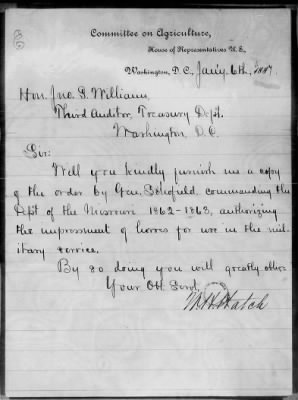 Committee on Agriculture,
House of Representatives U.S.,
Washington, D.C., Jan'y 6th, 1887.
Hon. Jno. S. Williams,
Third Auditor, Treasury Dept.
Washington D.C.
Sir:
Will you kindly furnish me a copy
of the order by Gen. Schofield, commanding the
Dept of the Missouri 1862-1863, authorizing
the impressment of horses for use in the mil-
itary service.
By so doing you will greatly oblige
Your Obt Servt,
Hatch